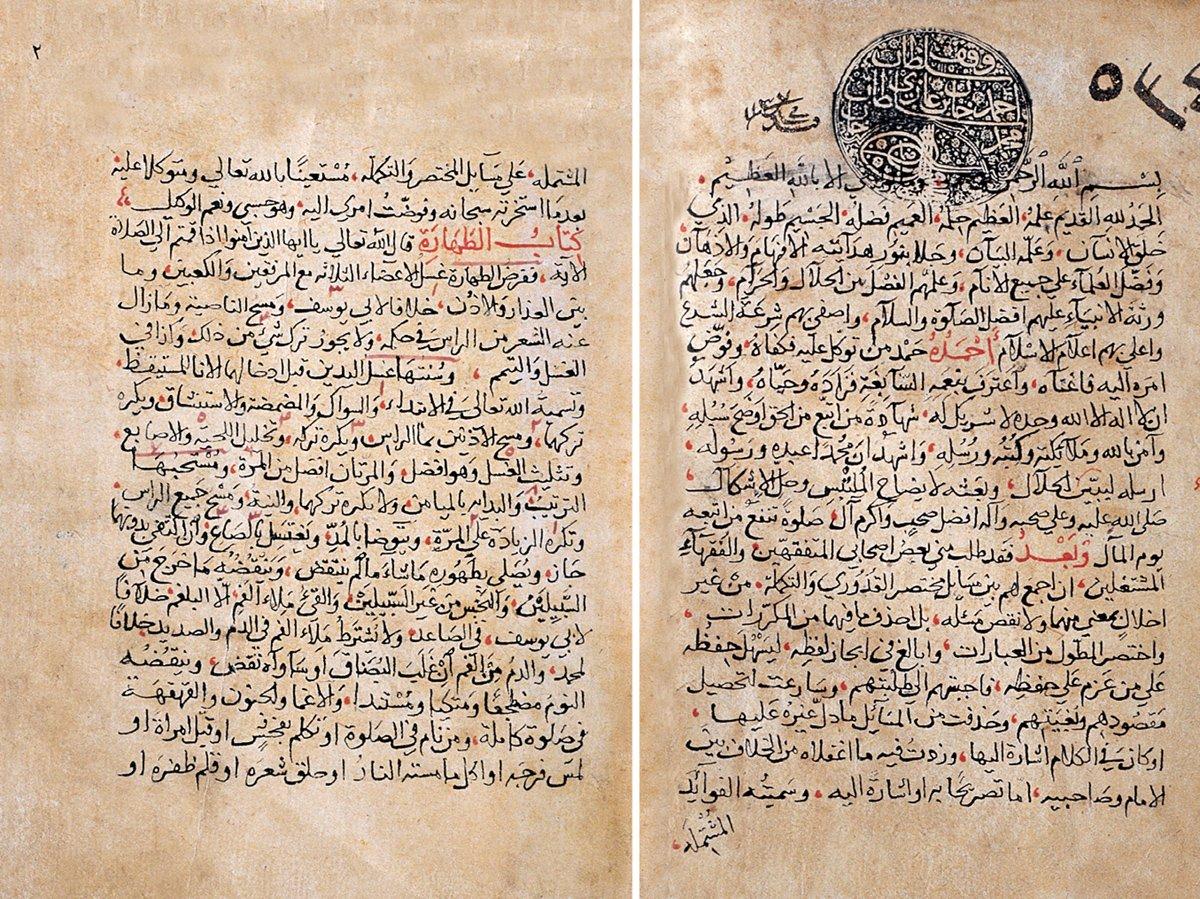 بسم الله الرحمن الرحيم وما توفيقي الا بالله العظيم
الحمد لله القديم علمه العظيم حلمه العميم فضله الجسيم طوله الذي
خلق الانسان وعلمه البيان وجلا بنور هدايته الافهام والاذهان
وفضل العلماء علي جميع الانام وعلمهم الفصل بين الحلال والحرام وجعلهم
ورثة الانبياء عليهم افضل الصلوة والسلام واصفي بهم شرعة الشرع
واعلي بهم اعلام الاسلام أحمده حمد من توكل عليه فكفاه وفوض
امره اليه فاغناه واعترف بنعمه السابغة فزاده وحباه واشهد
ان لا اله الا الله وحده لا شريك له شهادة من اتبع من الحق اوضح سبله
وآمن بالله وملائكته وكتبه ورسله واشهد ان محمدا عبده ورسوله
ارسله ليبين الحلال وبعثه لايضاح الملتبس وحل الاشكال
صلى الله عليه وعلي صحبه وآله افضل صحب واكرم آل صلوة تنفع من اتبعه
يوم المآل وبعد فقد طلب مني بعض اصحابي المتفقهين والفقهاء
المشتغلين ان اجمع لهم بين مسايل مختصر القدوري والتكملة من غير
اخلال بمعني منهما ولا نقص مسئله بل احذف ما فيهما من المكررات
واختصر المطول من العبارات وابالغ في ايجاز لفظه ليسهل حفظه
علي من عزم علي حفظه فاجبتهم الي طلبتهم وسارعت لتحصيل
مقصودهم وبغيتهم وحذفت من المسائل ما دل غيره عليها
او كان في الكلام اشارة اليها وزدت فيه ما اغفلاه من الخلاف بين
الامام وصاحبيه اما تصريحا به او اشارة اليه وسميته الفوائد
المشتمله
٢
المشتمله علي مسايل المختصر والتكمله مستعينا بالله تعالي ومتوكلا عليه
بعد ما استخرته سبحانه وفوضت امري اليه وهو حسبي ونعم الوكيل
كتاب الطهارة قال الله تعالي يا ايها الذين آمنوا اذا قمتم الي الصلاة
الاية ففرض الطهارة غسل الاعضاء الثلاثه مع المرفقين والكعبين وما
بين العذار والاذن خلافا لابي يوسف ومسح الناصية وما زال
عنه الشعر من الراس في حكمه ولا يجوز ترك شئ من ذلك وان زاد في
الغسل والتيمم وسننها غسل اليدين قبل ادخالهما الانا للمستيقظ
وتسمية الله تعالى في الابتداء والسواك والمضمضة والاستنشاق ويكره
تركهما ومسح الاذنين بما الراس ويكره تركه وتخليل اللحيه والاصابع
وتثليث الغسل وهو افضل والمرتان افضل من المرة ومستحبها
الترتيب والبداية بالميامن ولا يكره تركهما والنية ومسح جميع الراس
وتكره الزيادة علي المرة ويتوضا بالمد ويغتسل بالصاع وان اكتفي بدونها
جاز ويصلي بطهوره ما شاء ما لم ينتقض وينقضه ما خرج من
السبيلين والنجس من غير السبيلين والقئ ملاء الفم الا البلغم خلافا
لابي يوسف في الصاعد ولا يشترط ملاء الفم في الدم والصديد خلافا
لمحمد والدم من الفم ان غلب البصاق او ساواه نقض وينقضه
النوم مضطجعا ومتكيا ومستندا والاغما والجنون والقهقهة
في صلوة كاملة ومن نام في الصلوة او تكلم بفحش او قبل امراة او
لمس فرجه او اكل ما مسته النار او حلق شعره او قلم ظفره او